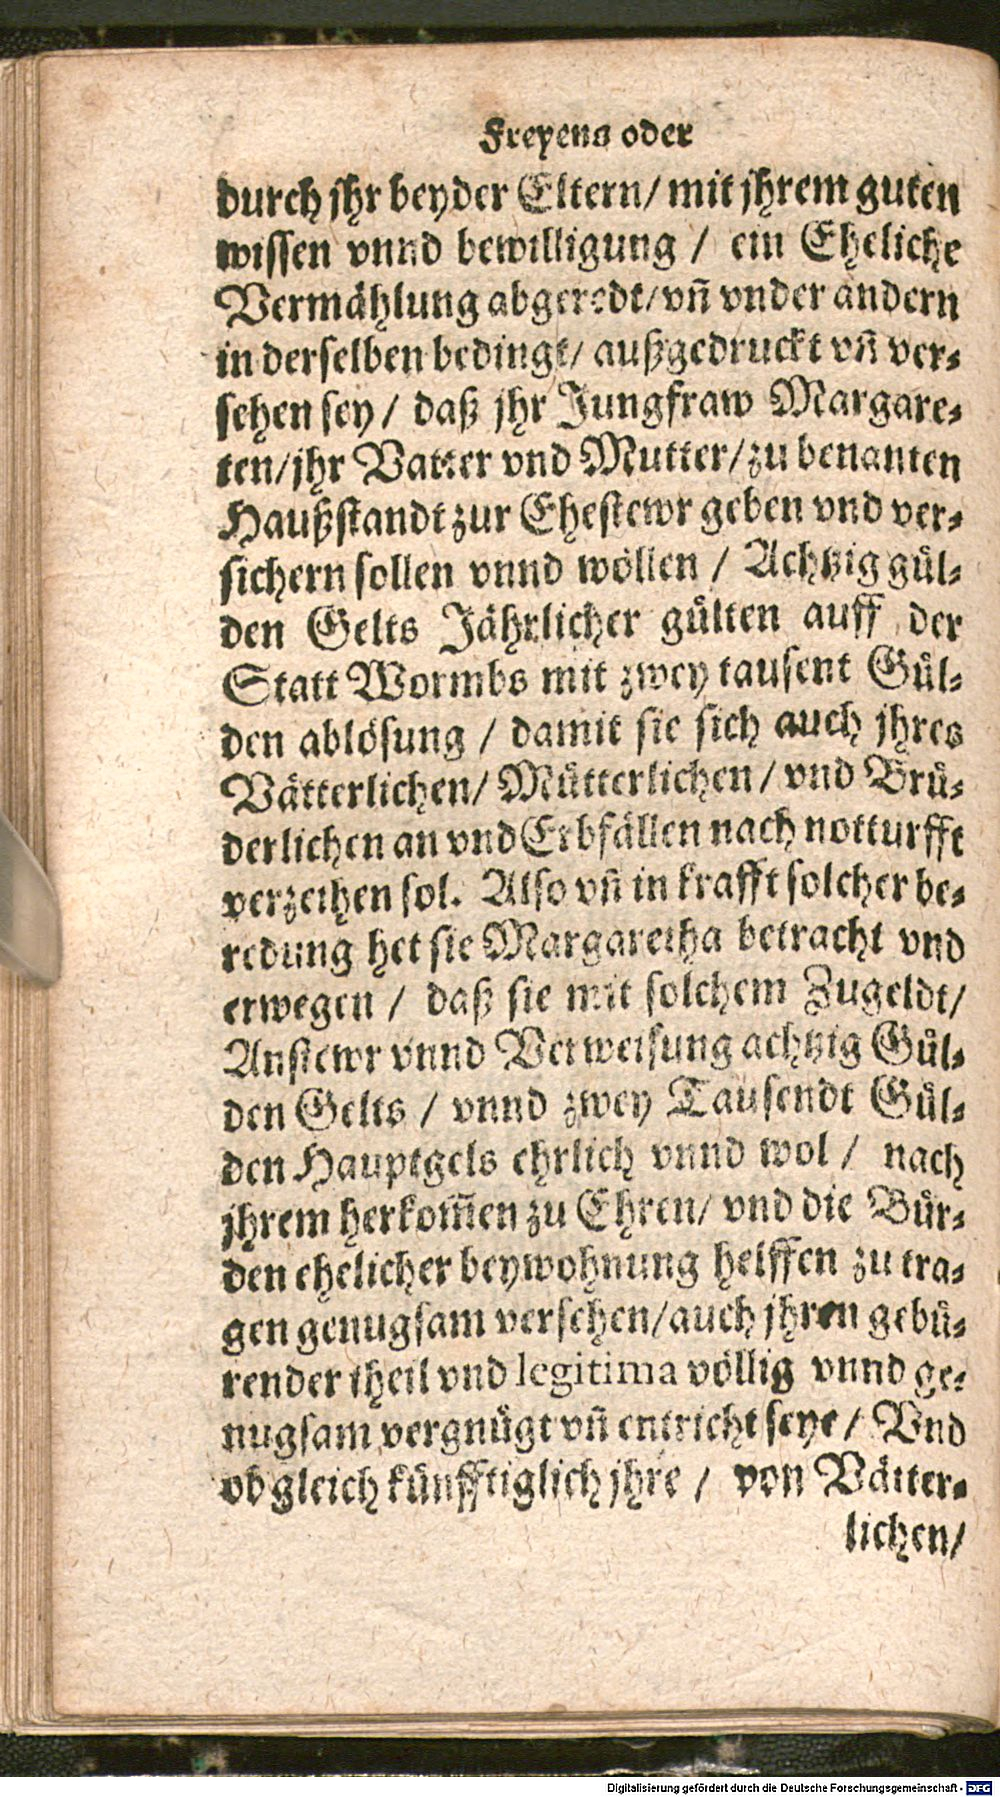 Freyens oder
durch jhr beyder Eltern/ mit jhrem guten
wissen vnnd bewilligung / ein Eheliche
Vermählung abgeredt/ vñ vnder andern
in derselben bedingt/ außgedruckt vñ ver-
sehen sey / daß jhr Jungfraw Margare-
ten/jhr Vatter vnd Mutter/zu benanten
Haußstandt zur Ehestewr geben vnd ver-
sichern sollen vnnd wöllen / Achtzig gül-
den Gelts Jährlicher gülten auff der
Statt Wormbs mit zwey tausent Gül-
den ablösung / damit sie sich auch jhres
Vätterlichen/ Mütterlichen/ vnd Brü-
derlichen an vnd Erbfällen nach notturfft
verzeihen sol. Also vñ in krafft solcher be-
redung het sie Margaretha betracht vnd
erwegen / daß sie mit solchem Zugeldt/
Anstewr vnnd Verweisung achtzig Gül-
den Gelts / vnnd zwey Tausendt Gül-
den Hauptgels ehrlich vnnd wol / nach
jhrem herkom̃en zu Ehren/ vnd die Bür-
den ehelicher beywohnung helffen zu tra-
gen genugsam versehen/auch jhren gebü-
render theil vnd legitima völlig vnnd ge-
nugsam vergnügt vñ entricht seye / Vnd
ob gleich künfftiglich jhre / von Vätter-
lichen/
Digitalisierung gefördert durch die Deutsche Forschungsgemeinschaft - DFG